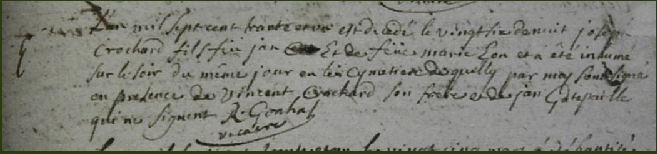 L'an mil sept cent trante et un est decedé le vingt six de nuit joseph
Crochard fils feu jan Et de feüe marie Lon et a été inhumé
sur le soir du même jour en le Cymetiere de quilly par moy soussigné
en presence de Vincent Crochard son frere et de jan
qui ne signent R. Gouhal
vicaire